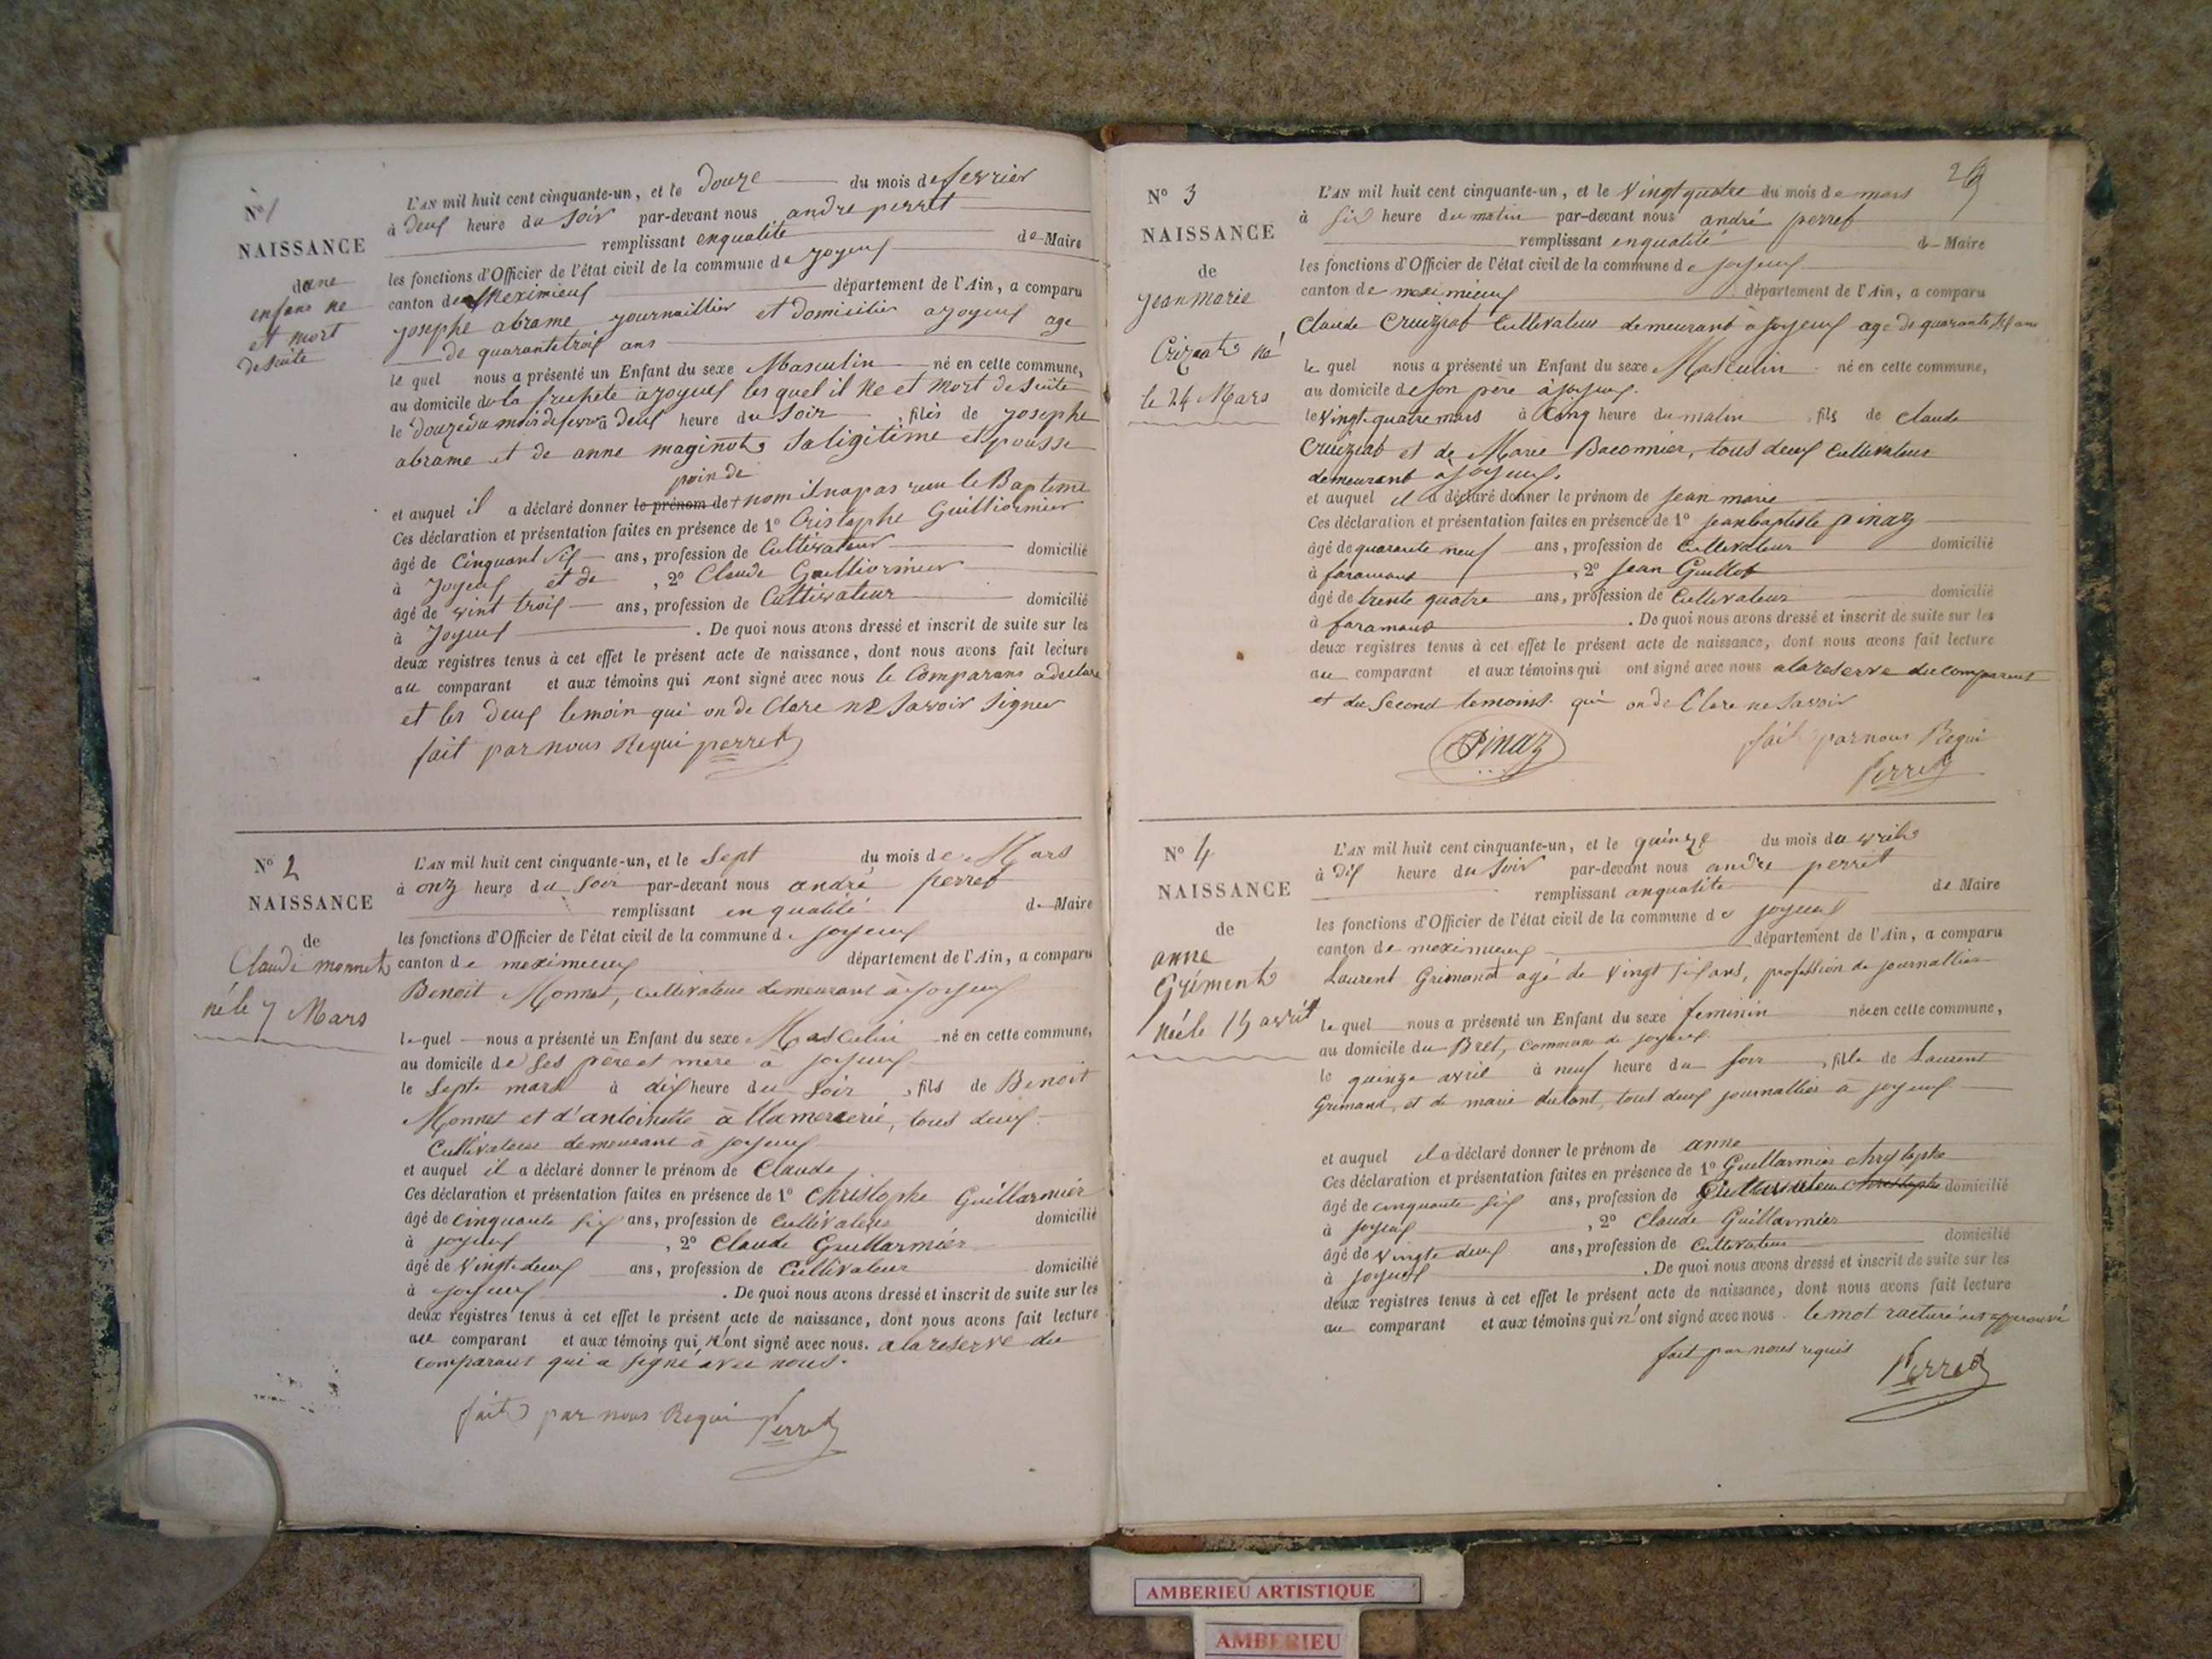 N° 1
NAISSANCE
dune
enfans ne
et mort
de suite
L'AN mil huit cent cinquante-un, et le Douze du mois de fevrier
à deux heure du Soir par-devant nous andre perret
remplissant enqualite de Maire
les fonctions d'Officier de l'état civil de la commune de joyeux
canton de Meximieux département de l'Ain, a comparu
josephe abrame journaillier et domicilier a joyeux age
de quarantetroix ans
le quel nous a présenté un Enfant du sexe Masculin né en cette commune,
au domicile de la a joyeux les quel il ne et mort de suite
le douze du mois de à deux heure du Soir , fils de josephe
abrame et de anne maginot Saligitime et pousse
poin de
et auquel il a déclaré donner le prénom de + nom il napas recu le Bapteme
Ces déclaration et présentation faites en présence de 1° Cristophe Guilliormier
âgé de Cinquant six ans, profession de Cultivateur domicilié
à Joyeux et de , 2° Claude Guilliormier
âgé de vint troix ans, profession de Cultivateur domicilié
à Joyeux . De quoi nous avons dressé et inscrit de suite sur les
deux registres tenus à cet effet le présent acte de naissance, dont nous avons fait lecture
au comparant et aux témoins qui nont signé avec nous le Comparans a declare
et les deux temoin qui on de Clare ne Savoir Signer
fait par nous Requi perret
N° 2
NAISSANCE
de
Claude monnet
né le 7 Mars
L'AN mil huit cent cinquante-un, et le Sept du mois de Mars
à onz heure du Soir par-devant nous andré perret
remplissant en qualité de Maire
les fonctions d'Officier de l'état civil de la commune de joyeux
canton de meximieux département de l'Ain, a comparu
Benoit Monnet, cultivateur demeurant à joyeux
lequel nous a présenté un Enfant du sexe Masculin né en cette commune,
au domicile de ses père et mere à joyeux
le Septe mars à dix heure du Soir , fils de Benoit
Monnet et d'antoinette tous deux
Cultivateur demeurant à joyeux
et auquel il a déclaré donner le prénom de Claude
Ces déclaration et présentation faites en présence de 1° Christophe Guillarmier
âgé de cinquante six ans, profession de Cultivateur domicilié
à joyeux , 2° Claude Guillarmier
âgé de vingt-deux ans, profession de Cultivateur domicilié
à joyeux . De quoi nous avons dressé et inscrit de suite sur les
deux registres tenus à cet effet le présent acte de naissance, dont nous avons fait lecture
au comparant et aux témoins qui n'ont signé avec nous. a la reserve du
comparant qui a signé avec nous.
fait par nous Requi Perret
29
N° 3
NAISSANCE
de
jean marie
né
le 24 Mars
L'AN mil huit cent cinquante-un, et le Vingt quatre du mois de mars
à six heure du matin par-devant nous andré perret
remplissant enqualité de Maire
les fonctions d'Officier de l'état civil de la commune de joyeux
canton de meximieux département de l'Ain, a comparu
Claude Cruiziat Cultivateur demeurant à joyeux age de quarante six ans
le quel nous a présenté un Enfant du sexe Masculin né en cette commune,
au domicile de son père à joyeux.
le Vingt-quatre mars à Cinq heure du matin , fils de Claude
Cruiziat et de Marie Baconnier, tous deux Cultivateur
demeurant à joyeux.
et auquel il a déclaré donner le prénom de jean marie
Ces déclaration et présentation faites en présence de 1° jean baptiste pinaz
âgé de quarante neuf ans, profession de Cultivateur domicilié
à faramans , 2° jean Guillot
âgé de trente quatre ans, profession de Cultivateur domicilié
à faramans . De quoi nous avons dressé et inscrit de suite sur les
deux registres tenus à cet effet le présent acte de naissance, dont nous avons fait lecture
au comparant et aux témoins qui ont signé avec nous a la reserve du comparant
et du Second temoins qui on de Clare ne Savoir
Pinaz
fait par nous Requi
Perret
N° 4
NAISSANCE
de
anne
Griment
née le 15 avril
L'AN mil huit cent cinquante-un, et le quinze du mois da vril
à dix heure du Soir par-devant nous andre perret
remplissant anqualite de Maire
les fonctions d'Officier de l'état civil de la commune de joyeux
canton de meximieux département de l'Ain, a comparu
Laurent Grimand agé de vingt six ans, profession de journallier
le quel nous a présenté un Enfant du sexe feminin née en cette commune,
au domicile du Bret, commune de joyeux.
le quinze avril à neuf heure du Soir , fille de Laurent
Grimand, et de marie dutant, tout deux journallier a joyeux
et auquel il a déclaré donner le prénom de anne
Ces déclaration et présentation faites en présence de 1° Guillarmier chrystophe
âgé de cinquante six ans, profession de domicilié
à joyeux , 2° Claude Guillarmier
âgé de vingte deux ans, profession de Cultivateur domicilié
à joyeux . De quoi nous avons dressé et inscrit de suite sur les
deux registres tenus à cet effet le présent acte de naissance, dont nous avons fait lecture
au comparant et aux témoins qui n'ont signé avec nous. le mot racturé est approuvé
fait par nous requis Perret
AMBERIEU ARTISTIQUE
AMBERIEU